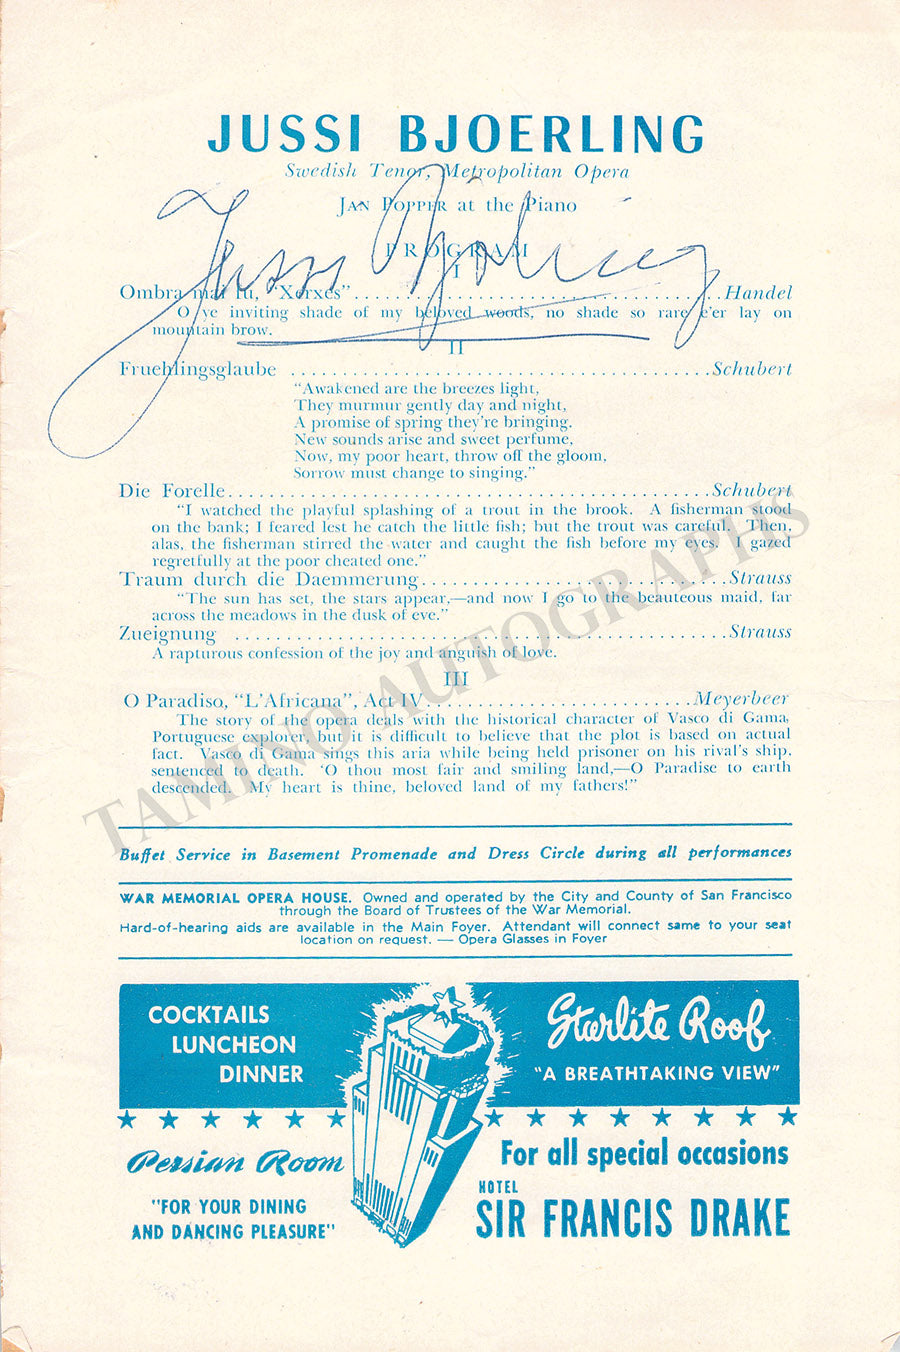 JUSSI BJOERLING
Swedish Tenor, Metropolitan Opera
JAN POPPER at the Piano
Jussi Björling
PROGRAM
I
Ombra mai fu, "Xerxes"........................................Handel
O ye inviting shade of my beloved woods, no shade so rare e'er lay on
mountain brow.
II
Fruehlingsglaube ........................................Schubert
"Awakened are the breezes light,
They murmur gently day and night,
A promise of spring they're bringing.
New sounds arise and sweet perfume,
Now, my poor heart, throw off the gloom,
Sorrow must change to singing."
Die Forelle........................................Schubert
"I watched the playful splashing of a trout in the brook. A fisherman stood
on the bank; I feared lest he catch the little fish; but the trout was careful. Then,
alas, the fisherman stirred the water and caught the fish before my eyes. I gazed
regretfully at the poor cheated one."
Traum durch die Daemmerung..............................Strauss
"The sun has set, the stars appear,—and now I go to the beauteous maid, far
across the meadows in the dusk of eve."
Zueignung ........................................Strauss
A rapturous confession of the joy and anguish of love.
III
O Paradiso, "L'Africana", Act IV..............................Meyerbeer
The story of the opera deals with the historical character of Vasco di Gama,
Portuguese explorer, but it is difficult to believe that the plot is based on actual
fact. Vasco di Gama sings this aria while being held prisoner on his rival's ship,
sentenced to death. 'O thou most fair and smiling land,—O Paradise to earth
descended. My heart is thine, beloved land of my fathers!"
TAMINO AUTOGRAPHS
Buffet Service in Basement Promenade and Dress Circle during all performances
WAR MEMORIAL OPERA HOUSE. Owned and operated by the City and County of San Francisco
through the Board of Trustees of the War Memorial.
Hard-of-hearing aids are available in the Main Foyer. Attendant will connect same to your seat
location on request. — Opera Glasses in Foyer
COCKTAILS
LUNCHEON
DINNER
Starlite Roof
"A BREATHTAKING VIEW"
Persian Room
"FOR YOUR DINING
AND DANCING PLEASURE"
For all special occasions
HOTEL
SIR FRANCIS DRAKE